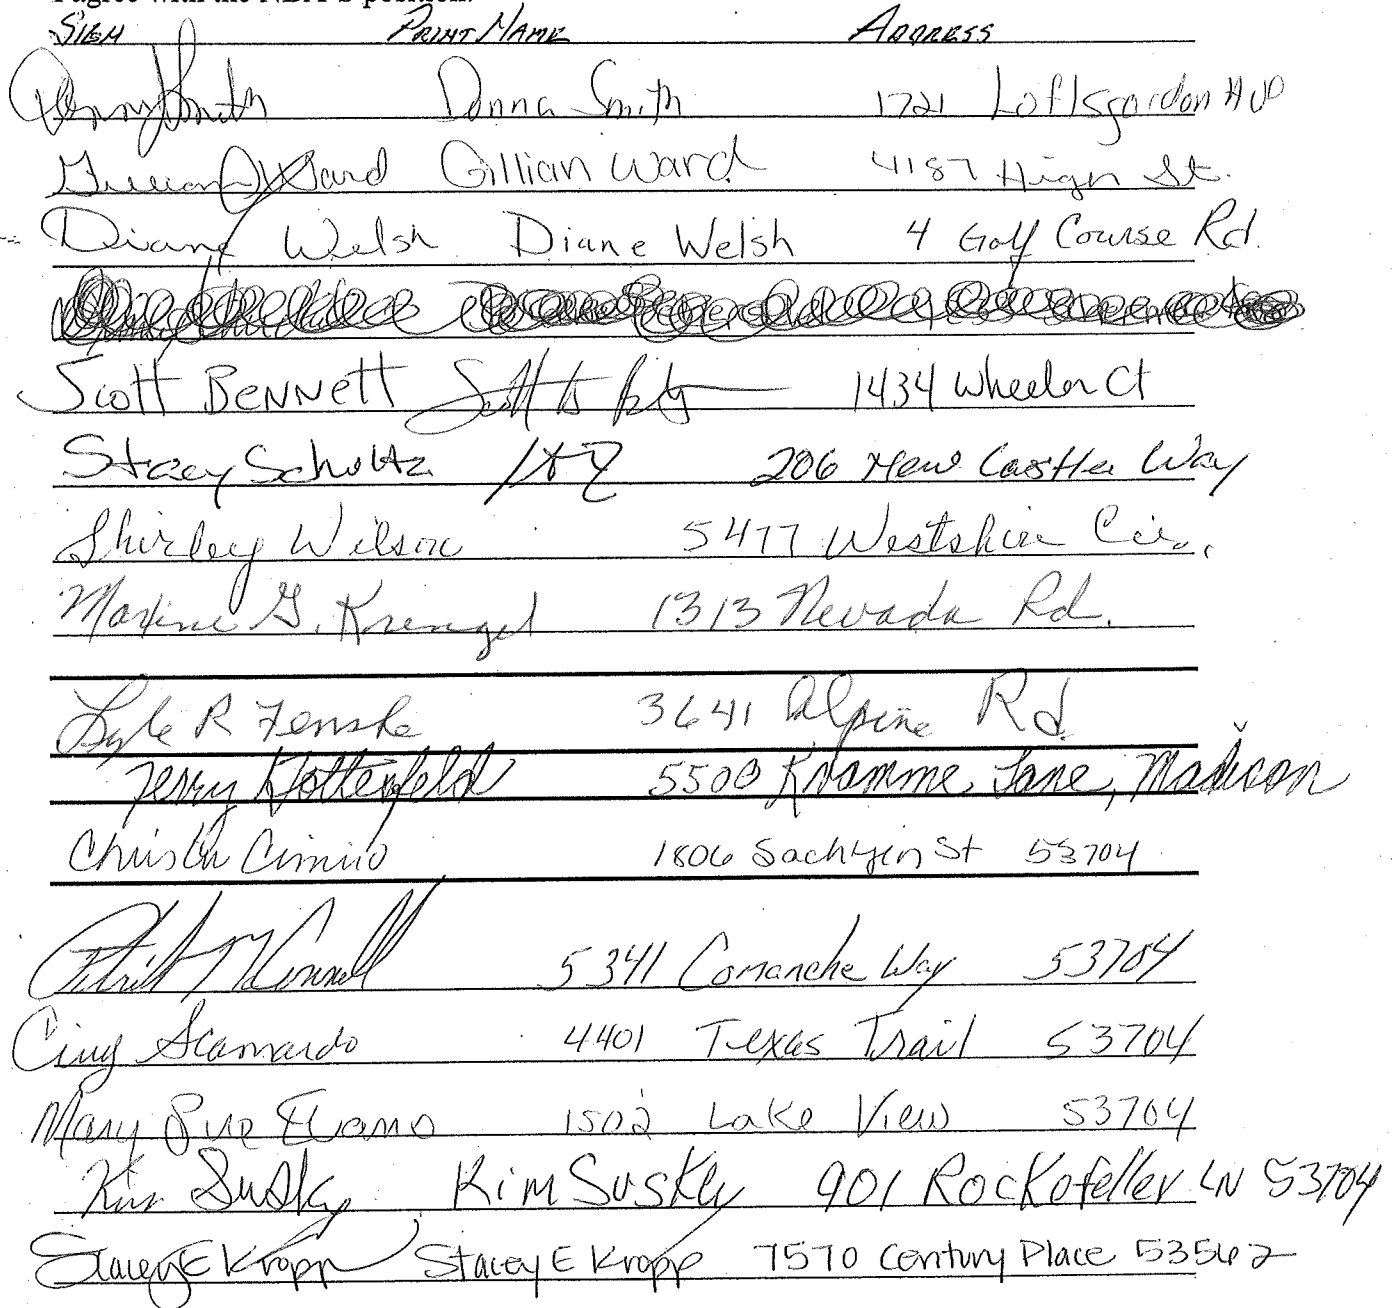 I agree with the NBPA's position.
SIGN PRINT NAME ADDRESS
Smith Donna Smith 1721 Loftsgordon Ave
Gillian Ward Gillian Ward 4187 High St.
Diane Welsh Diane Welsh 4 Golf Course Rd.
Scott BENNETT 1434 Wheeler Ct
Stacey Schultz 206 New Castle Way
Shirley Wilson 5477 Westshire Cir.
Maxine G. Krengel 1313 Nevada Rd.
Lyle R Fenske 3641 Alpine Rd.
Jerry 5500 Lane, Madison
1806 St 53704
McConnell 5341 Comanche Way 53704
Scamardo 4401 Texas Trail 53704
Mary Sue Evans 1502 Lake View 53704
Kim Susky Kim Susky 901 Rockefeller LN 53704
Stacey E Kropp Stacey E Kropp 7570 Century Place 53562